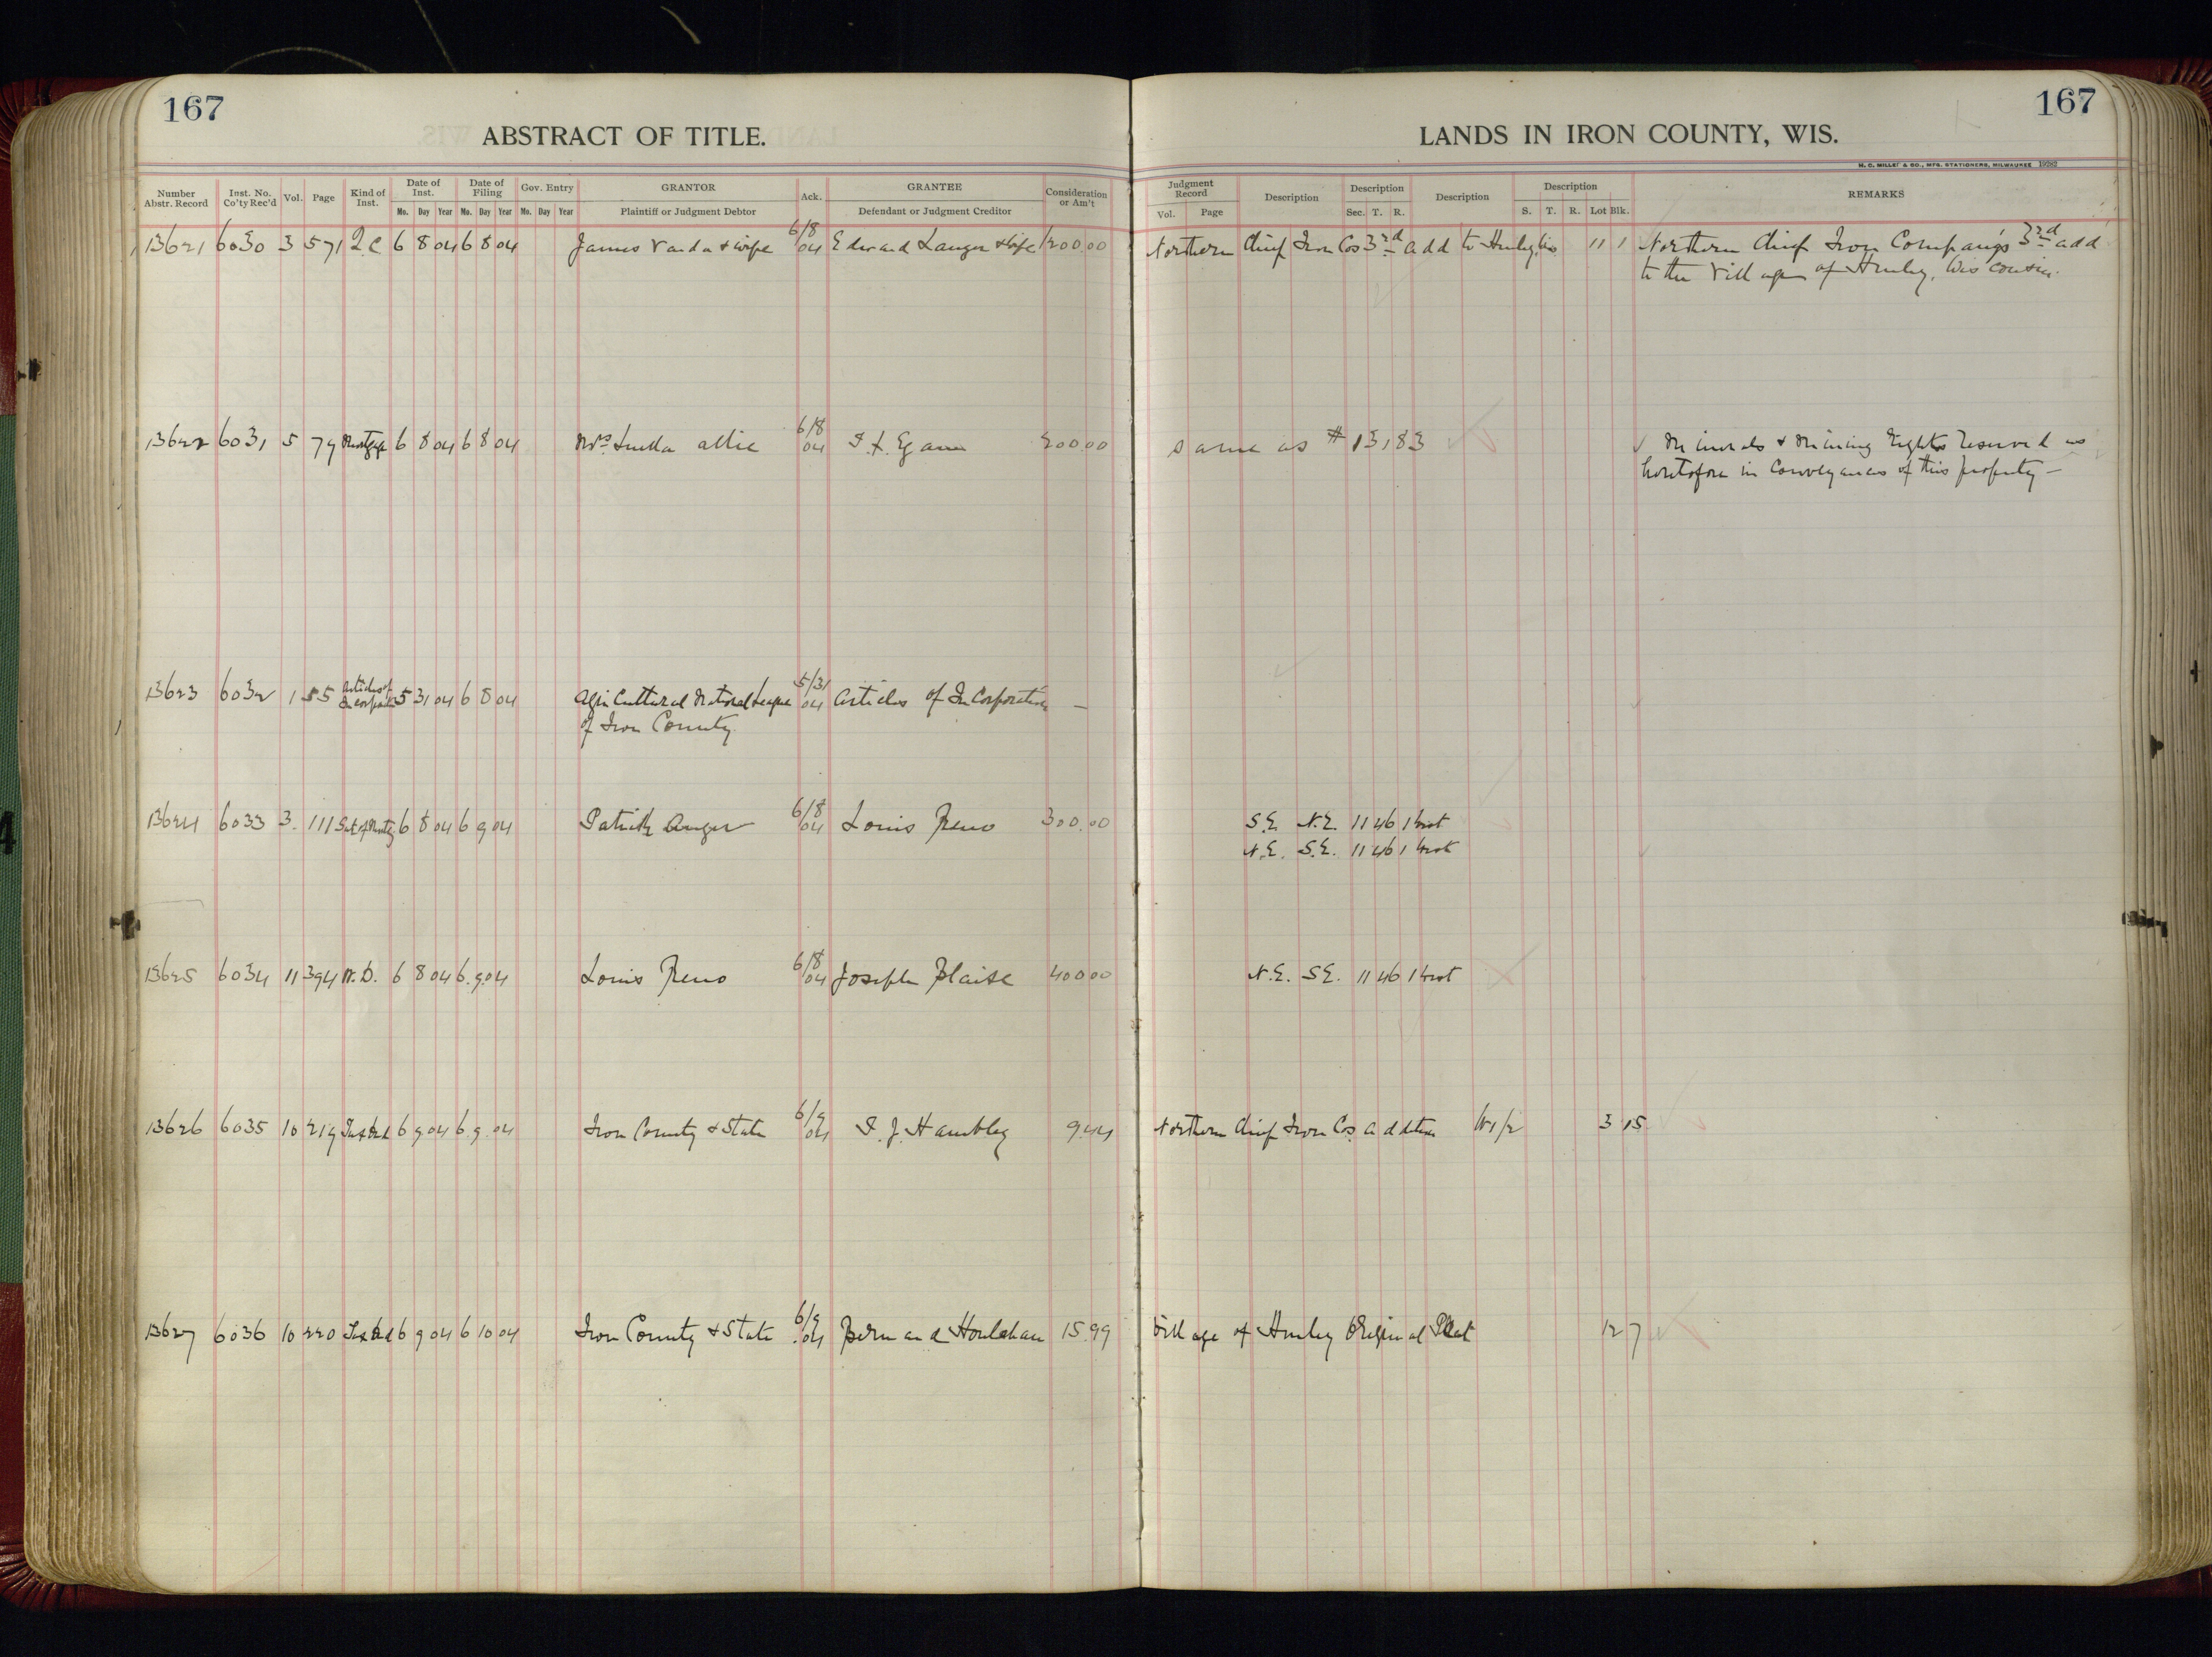 167
ABSTRACT OF TITLE.
167
LANDS IN IRON COUNTY, WIS.
H. C. MILLER & CO., MFG. STATIONERS, MILWAUKEE 19282
Number Abstr. Record
Inst. No. Co'ty Rec'd
Vol.
Page
Kind of Inst.
Date of Inst.
Mo. Day Year
Date of Filing
Mo. Day Year
Gov. Entry
Mo. Day Year
GRANTOR
Plaintiff or Judgment Debtor
Ack.
GRANTEE
Defendant or Judgment Creditor
Consideration or Am't
Judgment Record
Vol. Page
Description
Description
Sec. T. R.
Description
Description
S. T. R. Lot Blk.
REMARKS
13621 6030 3 571 2C 6 8 04 6 8 04 James & wife 6/8 04 Edward Langer & wife 1200.00 Northern Chief Iron Cos 3rd add to Hurley, Wis. 11 1 Northern Chief Iron Company's 3rd add
to the Village of Hurley, Wisconsin.
13622 6031 5 79 Mortgage 6 8 04 6 8 04 Mrs. 6/8 04 Egan 200.00 same as # 13183 Minerals & Mining Rights reserved as
heretofore in Conveyances of this property —
13623 6032 1 55 Articles of Incorporation 5 31 04 6 8 04 Agricultural National League 5/31 04 Articles of Incorporation —
of Iron County.
13624 6033 3 111 Sat of Mortg. 6 8 04 6 9 04 Patrick 6/8 04 Louis Reno 300.00 S.E. N.E. 11 46 1 West
N.E. S.E. 11 46 1 West
13625 6034 11 394 W.D. 6 8 04 6 9 04 Louis Reno 6/8 04 Joseph Blaise 400.00 N.E. S.E. 11 46 1 West
13626 6035 10 219 Tax Deed 6 9 04 6 9 04 Iron County & State 6/9 04 Hambley 9.44 Northern Chief Iron Cos. Addition W1/2 3 15
13627 6036 10 220 Tax Deed 6 9 04 6 10 04 Iron County & State 6/9 04 Bernard Houlahan 15.99 Village of Hurley Original Plat 12 7